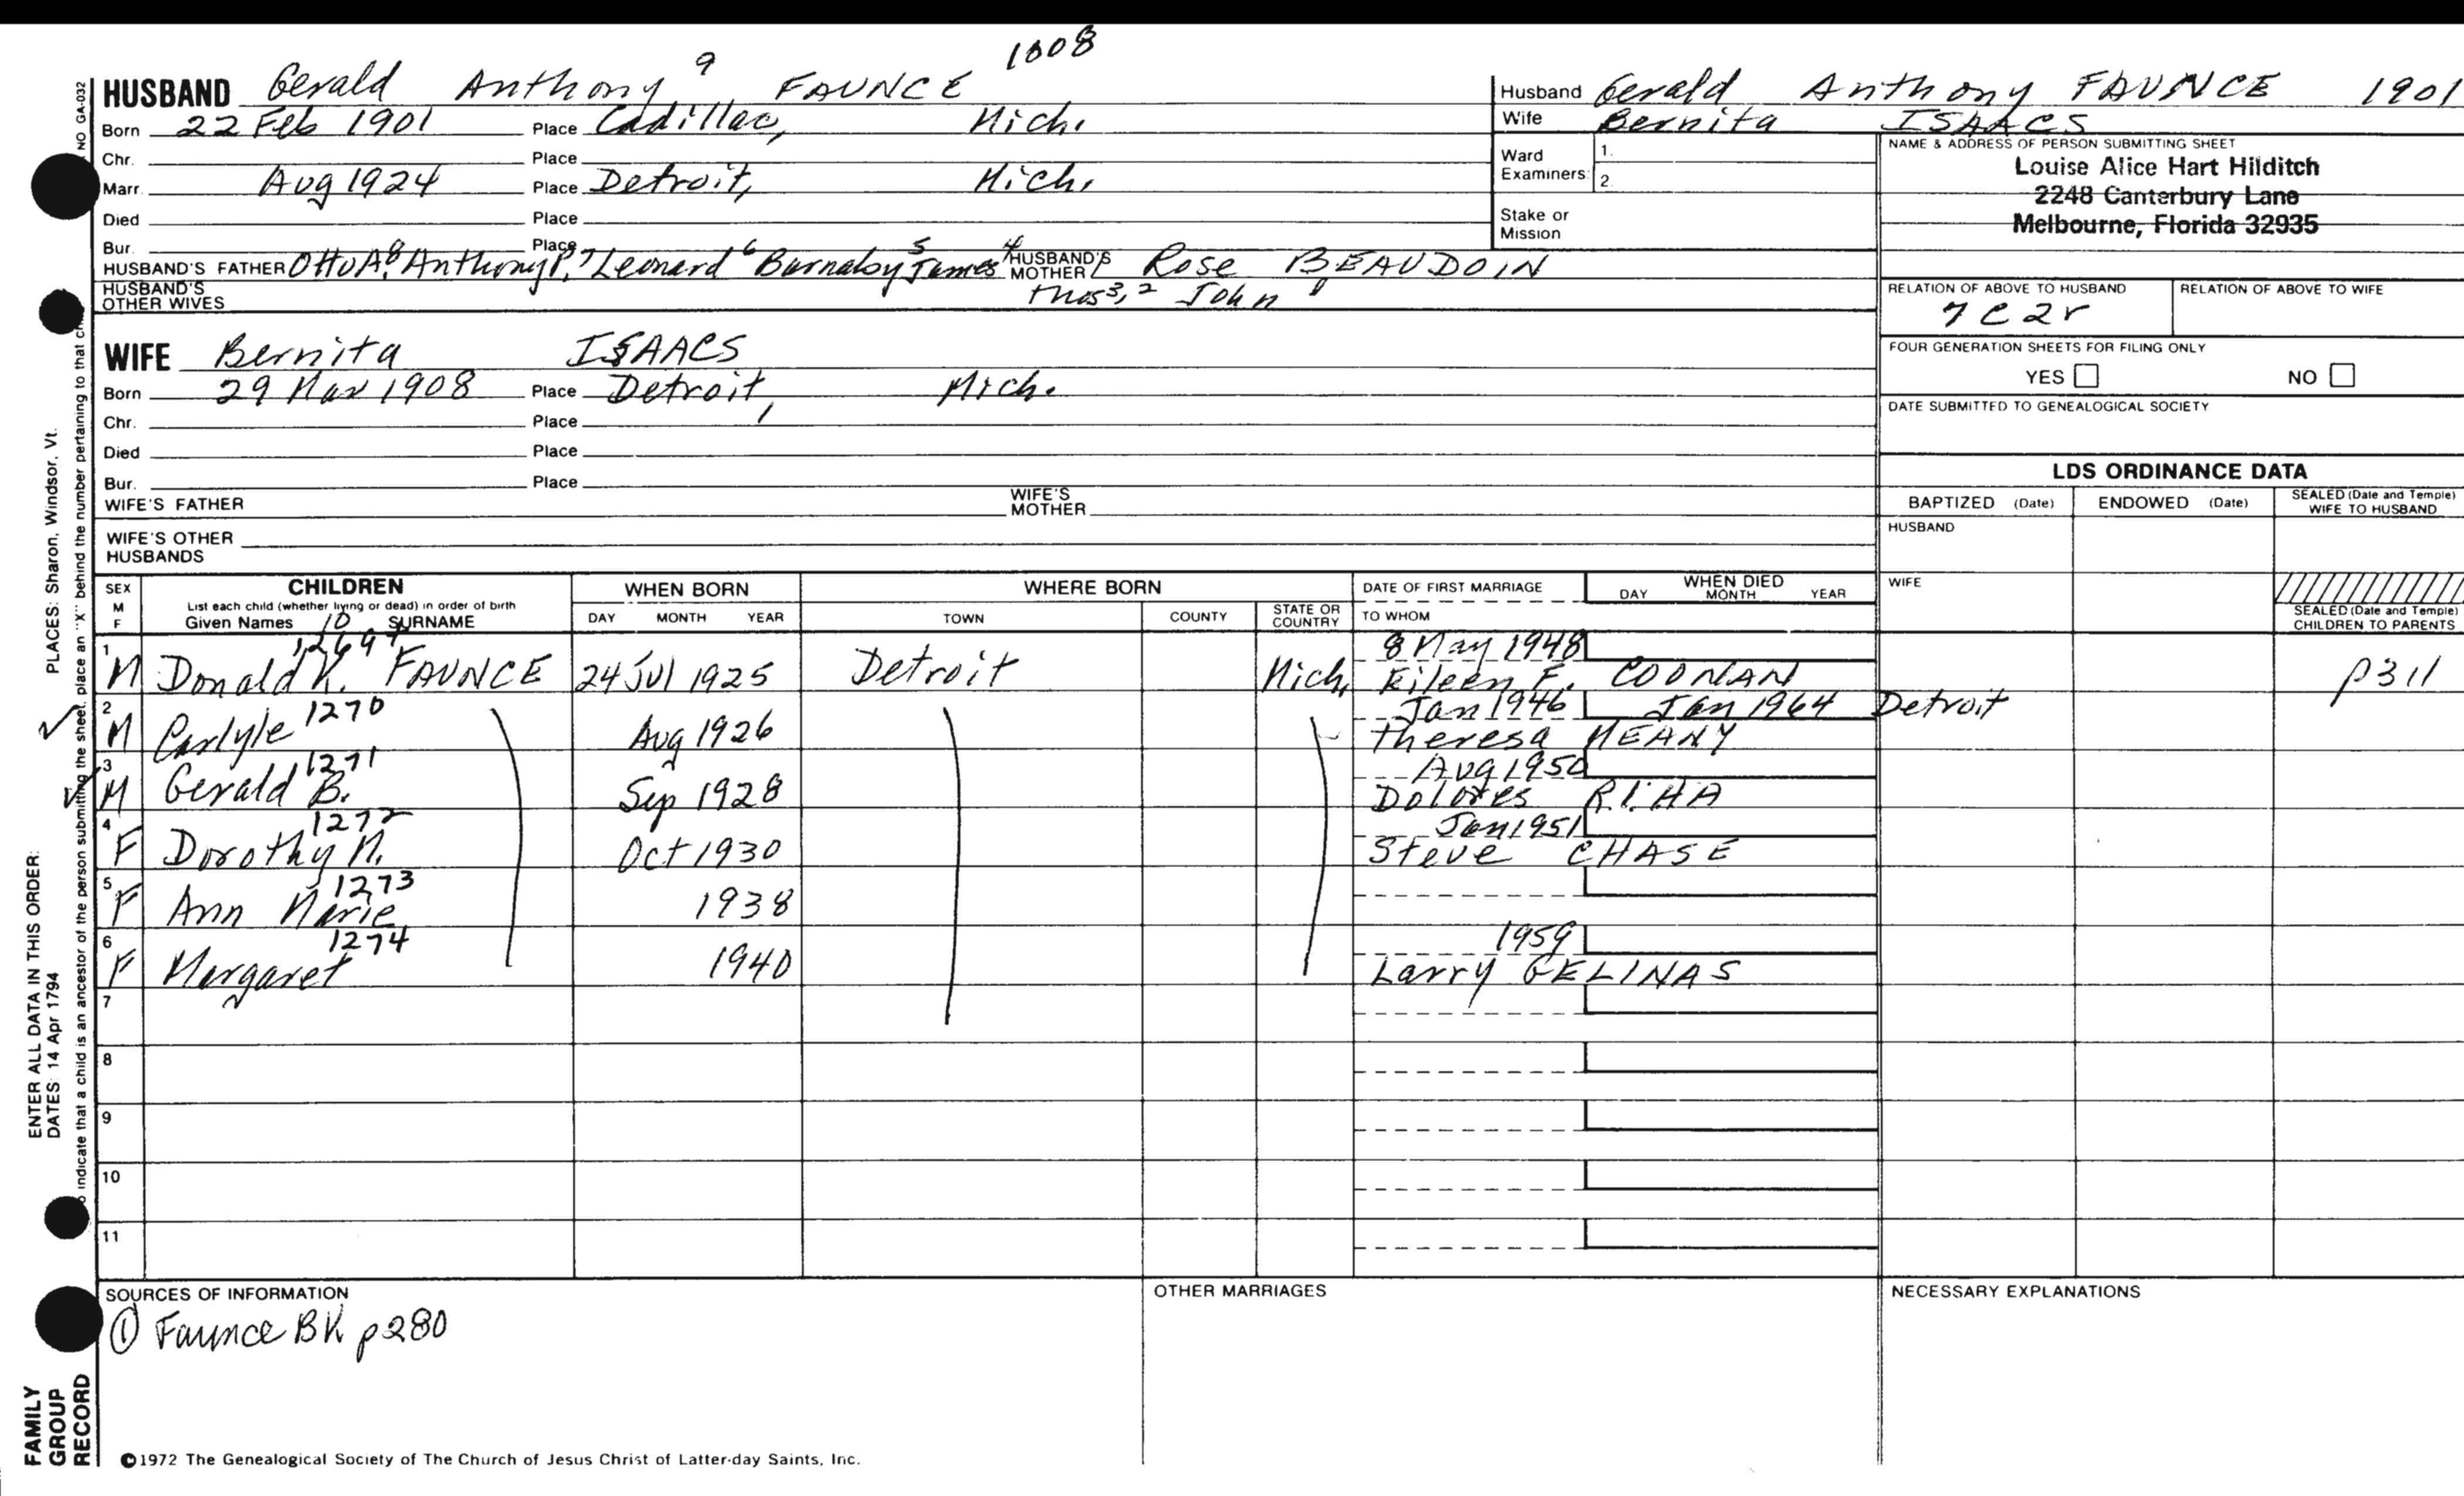 1008
HUSBAND Gerald Anthony 9 FAUNCE
Born 22 Feb 1901 Place Cadillac, Mich.
Chr. Place
Marr. Aug 1924 Place Detroit, Mich.
Died Place
Bur. Place
HUSBAND'S FATHER Otto A.8 Anthony P.7 Leonard 6 Barnaby 5 James 4 HUSBAND'S MOTHER Rose BEAUDOIN
HUSBAND'S OTHER WIVES Thos 3, 2 John 1
Husband Gerald Anthony FAUNCE 1901
Wife Bernita ISAACS
Ward Examiners: 1.
2.
Stake or Mission
NAME & ADDRESS OF PERSON SUBMITTING SHEET
Louise Alice Hart Hilditch
2248 Canterbury Lane
Melbourne, Florida 32935
RELATION OF ABOVE TO HUSBAND RELATION OF ABOVE TO WIFE
7C2r
FOUR GENERATION SHEETS FOR FILING ONLY
YES NO
DATE SUBMITTED TO GENEALOGICAL SOCIETY
WIFE Bernita ISAACS
Born 29 Mar 1908 Place Detroit, Mich.
Chr. Place
Died Place
Bur. Place
WIFE'S FATHER WIFE'S MOTHER
WIFE'S OTHER HUSBANDS
LDS ORDINANCE DATA
BAPTIZED (Date) ENDOWED (Date) SEALED (Date and Temple) WIFE TO HUSBAND
HUSBAND
WIFE
SEALED (Date and Temple) CHILDREN TO PARENTS
SEX M F CHILDREN WHEN BORN WHERE BORN DATE OF FIRST MARRIAGE WHEN DIED
List each child (whether living or dead) in order of birth
Given Names 10 SURNAME DAY MONTH YEAR TOWN COUNTY STATE OR COUNTRY TO WHOM DAY MONTH YEAR
1269+ 8 May 1948
1 M Donald K. FAUNCE 24 Jul 1925 Detroit Mich. Eileen F. COONAN p311
1270 Jan 1946 Jan 1964 Detroit
2 M Carlyle Aug 1926 Theresa MEANY
1271 Aug 1950
3 M Gerald B. Sep 1928 Dolores RIHA
1272 Jan 1951
4 F Dorothy M. Oct 1930 Steve CHASE
1273
5 F Ann Marie 1938
1274 1959
6 F Margaret 1940 Larry GELINAS
7
8
9
10
11
SOURCES OF INFORMATION OTHER MARRIAGES NECESSARY EXPLANATIONS
① Faunce BK p280
©1972 The Genealogical Society of The Church of Jesus Christ of Latter-day Saints, Inc.
FAMILY GROUP RECORD
ENTER ALL DATA IN THIS ORDER:
DATES: 14 Apr 1794
PLACES: Sharon, Windsor, Vt.
indicate that a child is an ancestor of the person submitting the sheet, place an "X" behind the number pertaining to that
NO GA-032